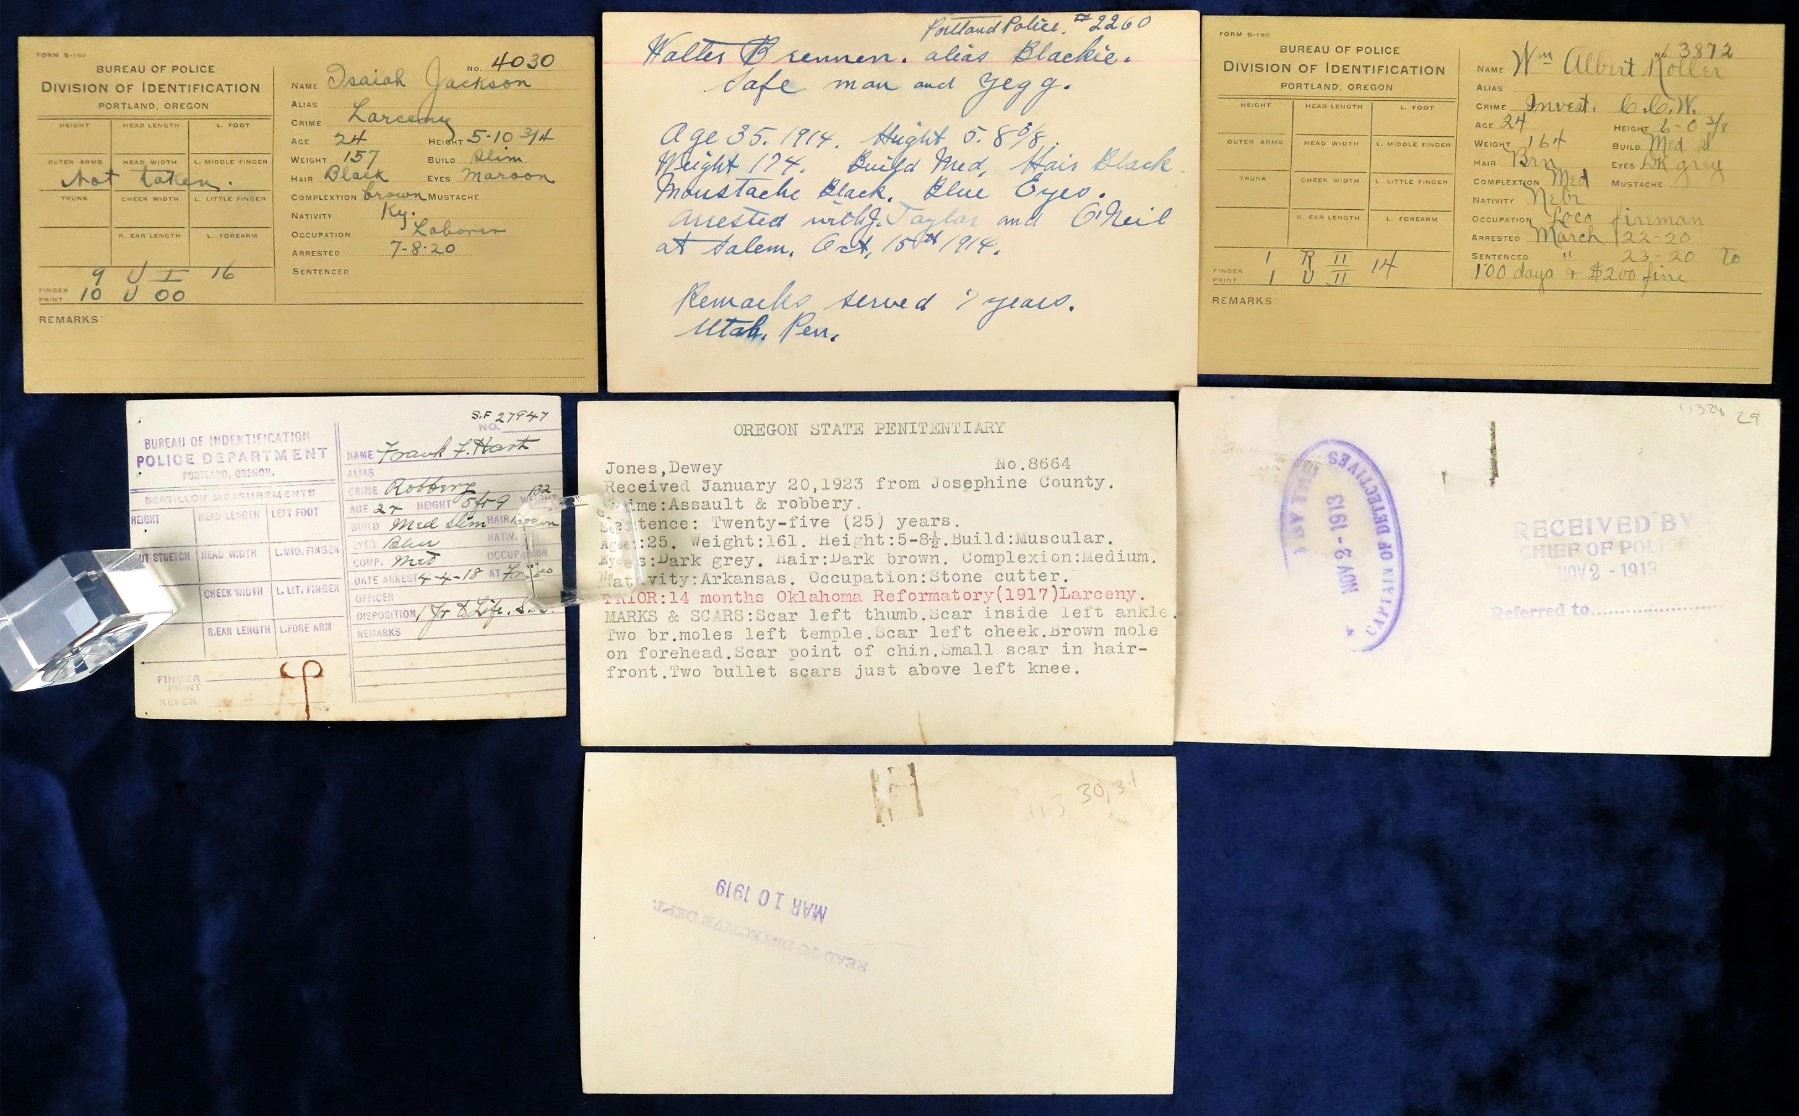 FORM S-180
BUREAU OF POLICE
DIVISION OF IDENTIFICATION
PORTLAND, OREGON
HEIGHT HEAD LENGTH L. FOOT
OUTER ARMS HEAD WIDTH L. MIDDLE FINGER
Not taken.
TRUNK CHEEK WIDTH L. LITTLE FINGER
R. EAR LENGTH L. FOREARM
9 U I 16
FINGER PRINT 10 U OO
No. 4030
NAME Isaiah Jackson
ALIAS
CRIME Larceny
AGE 24 HEIGHT 5-10 3/4
WEIGHT 157 BUILD Slim
HAIR Black EYES Maroon
COMPLEXION brown MUSTACHE
NATIVITY Ky.
OCCUPATION Laborer
ARRESTED 7-8-20
SENTENCED
REMARKS:
Portland Police. #2260
Walter Brennen. alias Blackie.
Safe man and Yegg.
Age 35. 1914. Height 5. 8 5/8.
Weight 174. Build Med, Hair Black.
Moustache Black. Blue Eyes.
arrested with J. Taylor and O'Neil
at Salem, Oct, 15th 1914.
Remarks served 7 years.
Utah. Pen.
FORM S-180
BUREAU OF POLICE
DIVISION OF IDENTIFICATION
PORTLAND, OREGON
HEIGHT HEAD LENGTH L. FOOT
OUTER ARMS HEAD WIDTH L. MIDDLE FINGER
TRUNK CHEEK WIDTH L. LITTLE FINGER
R. EAR LENGTH L. FOREARM
1 R II 14
FINGER PRINT 1 U II
No. 3872
NAME Wm Albert Koller
ALIAS
CRIME Invest. C.C.W.
AGE 24 HEIGHT 6-0 3/8
WEIGHT 164 BUILD Med Sl
HAIR Brn EYES Dk grey
COMPLEXION Med MUSTACHE
NATIVITY Nebr
OCCUPATION Loco fireman
ARRESTED March 22-20
SENTENCED " 23-20 To
100 days & $200 fine
REMARKS:
BUREAU OF INDENTIFICATION
POLICE DEPARTMENT
PORTLAND, OREGON.
BERTILLON MEASUREMENTS
HEIGHT HEAD LENGTH LEFT FOOT
OUT STRETCH HEAD WIDTH L.MID. FINGER
CHEEK WIDTH L. LIT. FINGER
R.EAR LENGTH L.FORE ARM
FINGER PRINT
REFER.
S.F 27947
NO.
NAME Frank F. Hart
ALIAS
CRIME Robbery
AGE 24 HEIGHT 5 ft 9 WEIGHT 132
BUILD Med Slim HAIR
EYES Blue NATIV.
COMP. Med OCCUPATION
DATE ARREST 4-4-18 AT
OFFICER
DISPOSITION 1 yr to Life. S.Q.
REMARKS
OREGON STATE PENITENTIARY
Jones,Dewey No.8664
Received January 20,1923 from Josephine County.
Crime:Assault & robbery.
Sentence: Twenty-five (25) years.
Age:25. Weight:161. Height:5-8½.Build:Muscular.
Eyes:Dark grey. Hair:Dark brown. Complexion:Medium.
Nativity:Arkansas. Occupation:Stone cutter.
PRIOR:14 months Oklahoma Reformatory(1917)Larceny.
MARKS & SCARS:Scar left thumb.Scar inside left ankle.
Two br.moles left temple.Scar left cheek.Brown mole
on forehead.Scar point of chin.Small scar in hair-
front.Two bullet scars just above left knee.
29
NOV 2 - 1913
CAPTAIN OF DETECTIVES
RECEIVED BY
CHIEF OF POLICE
NOV 2 - 1913
Referred to
30,31
MAR 10 1919
READ TO DETECTIVE DEPT.